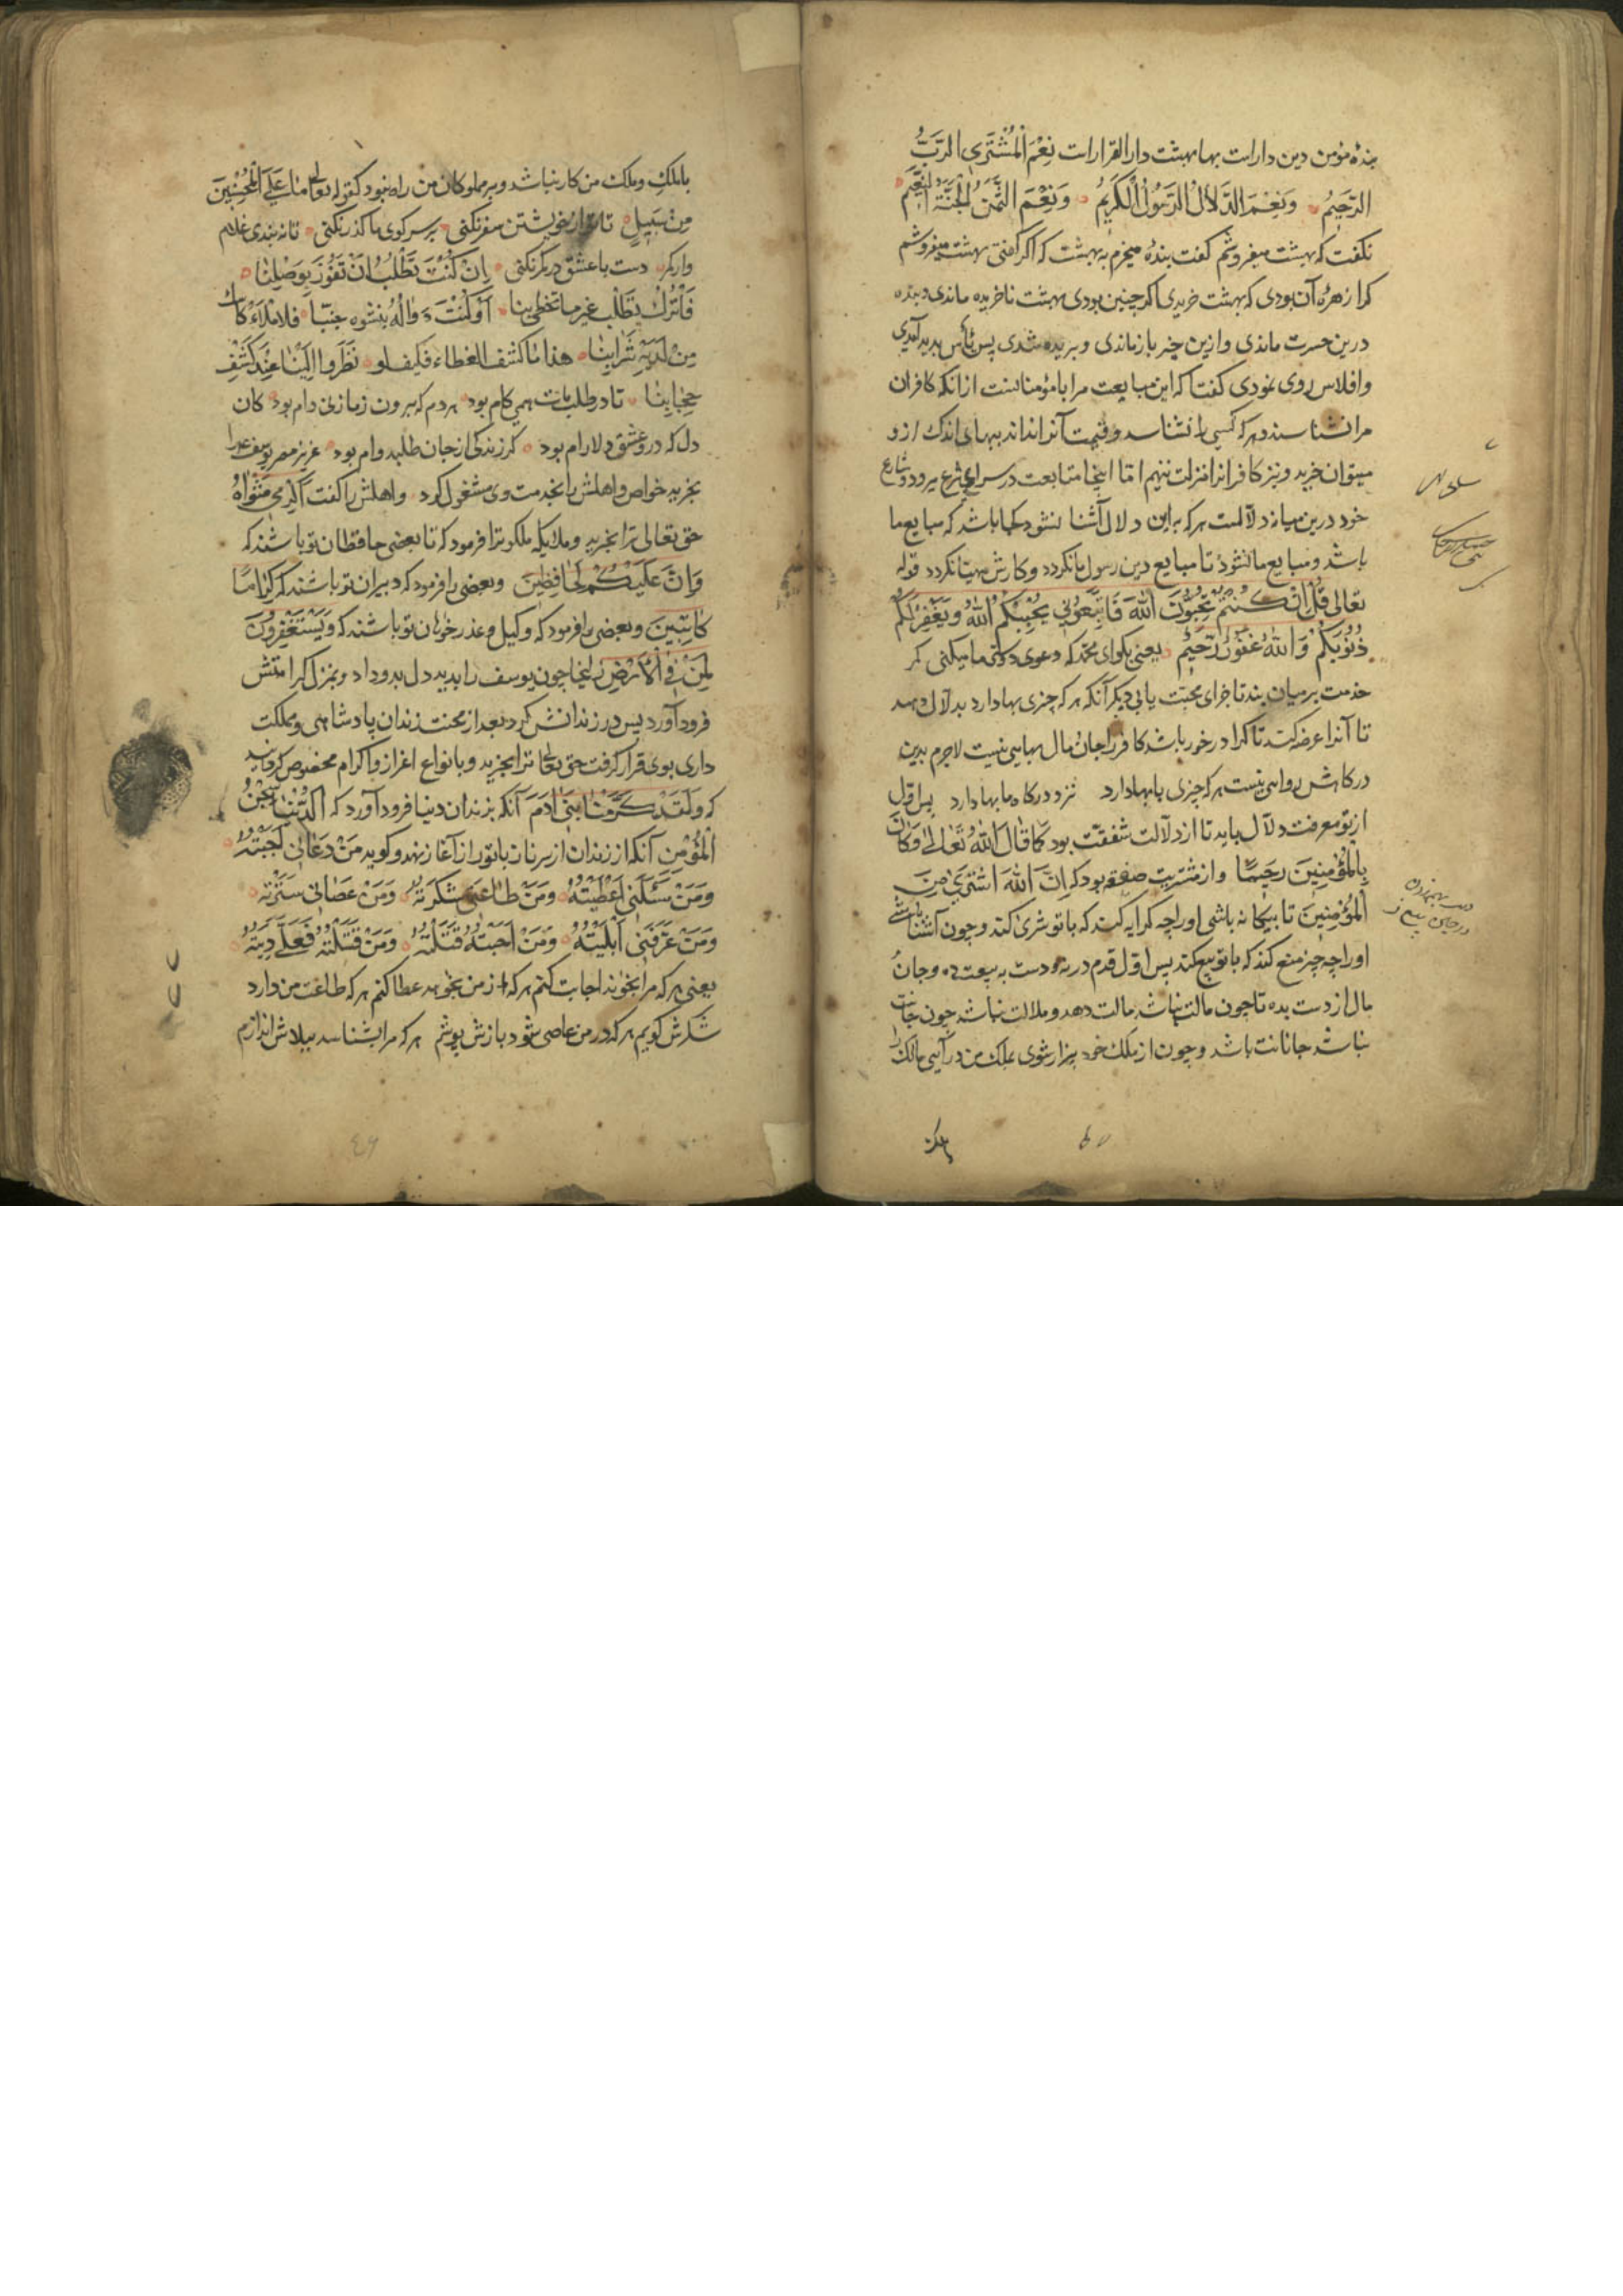 بندهٔ مؤمن دین دار است بها بهشت دار القرار است نِعْمَ الْمُشْتَرِی الرَّبُّ
الرَّحِیمُ وَنِعْمَ الدَّلَالُ الرَّسُولُ الْكَرِیمُ وَنِعْمَ الثَّمَنُ الْجَنَّةُ النَّعِیم
نکفت که بهشت میفروشم کفت بنده میخرم به بهشت که اکر کفتی بهشت میفروشم
کرا زهرهٔ آن بودی که بهشت خریدی اکر چنین بودی بهشت ناخریده ماندی و بنده
درین حسرت ماندی و ازین چیز باز ماندی و بریده شدی پس یأس پدید آمدی
و افلاس روی نمودی کفتا که این مبایعت مرا با مؤمنانست از انکه کافران
مرا نشناسند و هر که کسی را نشناسد و قیمت آنرا نداند ببهای اندک ازو
میتوان خرید و نیز کافرانرا منزلت ننهم امّا اینجا متابعت در سرای شرع میرود و شارع
خود درین میانه دلالست هر که براین دلال آشنا نشود کجا باشد که مبایع ما
باشد و مبایع ما نشود تا مبایع دین رسول ما نکردد و کارش مهیّا نکردد قوله
تعالی قُلْ اِنْ كُنْتُمْ تُحِبُّونَ اللهَ فَاتَّبِعُونِی یُحْبِبْكُمُ اللهُ وَیَغْفِرْ لَكُمْ
ذُنُوبَكُمْ وَاللهُ غَفُورٌ رَحِیْمٌ یعنی بکو ای محمّد که دعوی دوستی ما میکنی کمر
خدمت بر میان بند تا جزای محبّت یابی دیکر آنکه هر که چیزی بها دارد بدلّال دهد
تا آنرا عرضه کند تا کرا در خور باشد کافر را جان و مال بهایی نیست لاجرم بدین
درکاهش روایی نیست هر که چیزی با بها دارد نزد درکاه ما بها دارد پس اوّل
از تو معرفت دلّال باید تا از دلّالت شفقّت بود كَمَا قَالَ اللهُ تَعَالٰی وَكَانَ
بِالْمُؤْمِنِینَ رَحِیْمًا و از مشتریت صفقه بود که اِنَّ اللهَ اشْتَرٰی مِنَ
الْمُؤْمِنِینَ تا بیکانه باشی اورا چه کرایه کند که با تو شری کند و چون آشنا باشی
اورا چه چیز منع کند که با تو بیع کند پس اوّل قدم در نه و دست به بیعت ده و جان و
مال از دست بده تا چون مالت نباشد مالت دهد و ملالت نباشد چون جانت
نباشد جانانت باشد و چون از ملک خود بیزار شوی بملک من در آیی مالک را
با ملک و ملک من کار نباشد و بر مملوکان من راه نبود کقوله تعالی مَا عَلَی الْمُحْسِنِینَ
مِنْ سَبِیلٍ تا تو از خویشتن سفر نکنی بر سر کوی ما کذر نکنی تا نه بندی غلام
وار کمر دست با عشق در کمر نکنی اِنْ كُنْتَ تَطْلُبُ اَنْ تَفُوزَ بِوَصْلِنَا
فَاتْرُكْ تَطَلُّبَ غیر ما تحظی بنا
مِنْ لَدَیْهِ شَرَابِنَا هذا ما کشف الغطاء فکیف لو نَظَرُوا اِلَیْنَا عِنْدَ كَشْفِ
حِجَابِنَا تا در طلب مات همی کام بود هر دم که برون زما زنی دام بود کان
دل که درو عشق دلارام بود کر زندکی از جان طلبد وام بود عزیز مصر یوسف را
بخرید خواص و اهلش را بخدمت وی مشغول کرد و اهلش را کفت اَكْرِمِی مَثْوَاهُ
حق تعالی ترا بخرید و ملایکه ملکوترا فرمود که تا بعضی حافظان تو باشند که
وَاِنَّ عَلَیْكُمْ لَحَافِظِینَ و بعضی را فرمود که دبیران تو باشند که كِرَامًا
كَاتِبِینَ و بعضی را فرمود که وکیل و عذر خواهان تو باشند که وَیَسْتَغْفِرُونَ
لِمَنْ فِی الْاَرْضِ زلیخا چون یوسف را بدید دل بدو داد و بمنزل کرامتش
فرود آورد پس در زندانش کرد بعد از محنت زندان پادشاهی و مملکت
داری بوی قرار کرفت حق تعالی ترا بخرید و بانواع اعزاز و اکرام مخصوص کردانید
که وَلَقَدْ كَرَّمْنَا بَنِی اٰدَمَ آنکه بزندان دنیا فرود آورد که اَلدُّنْیَا سِجْنُ
الْمُؤْمِنِ آنکه از زندان از سر ناز با تو راز آغاز نهد و کوید مَنْ دَعَانِی اَجَبْتُهُ
وَمَنْ سَئَلَنِی اَعْطَیْتُهُ وَمَنْ طَاعَنِی شَكَرْتُهُ وَمَنْ عَصَانِی سَتَرْتُهُ
وَمَنْ عَرَفَنِی اَبْلَیْتُهُ وَمَنْ اَحَبَّنِی قَتَلْتُهُ وَمَنْ قَتَلْتُهُ فَعَلَیَّ دِیَتُهُ
یعنی هر که مرا بخواند اجابت کنم هر که از من بخواهد عطا کنم هر که طاعت من دارد
شکرش کویم هر که در من عاصی شود بازش پوشم هر که مرا بشناسد ببلاش اندازم